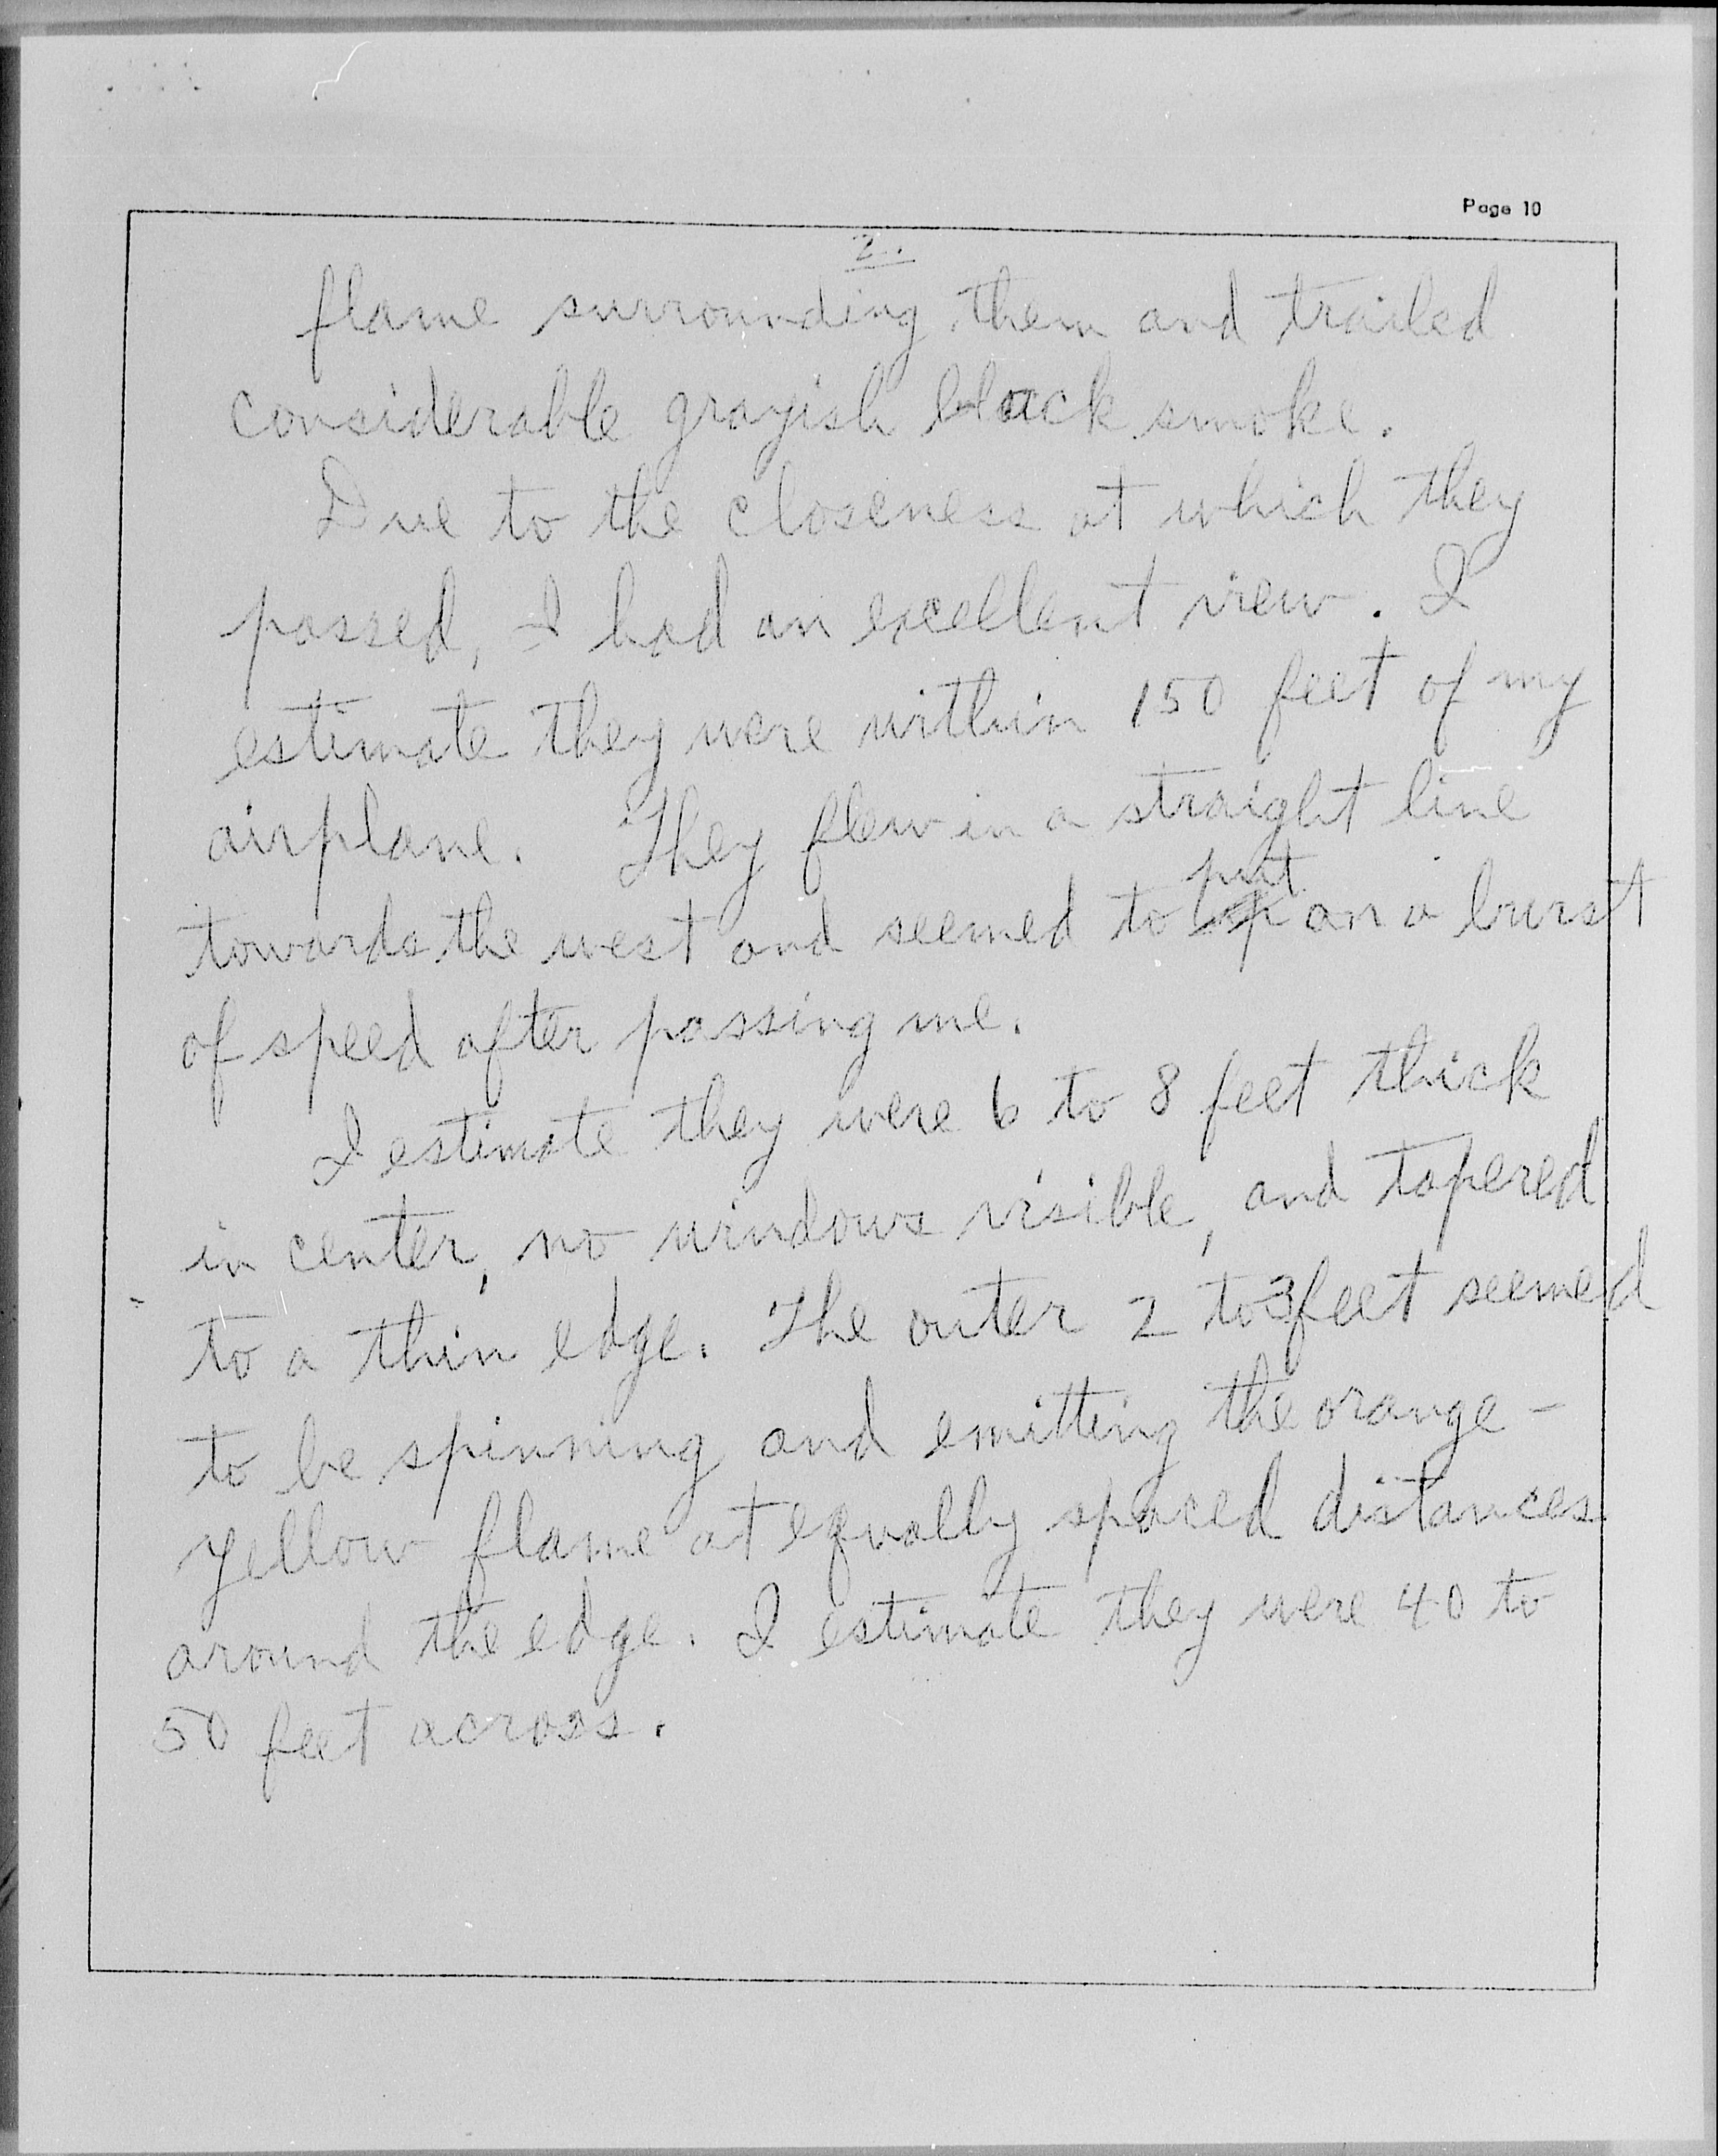 Page 10
2.
flame surrounding them and trailed
considerable grayish black smoke.
Due to the closeness at which they
passed, I had an excellent view. I
estimate they were within 150 feet of my
airplane. They flew in a straight line
put
towards the west and seemed to on a burst
of speed after passing me.
I estimate they were 6 to 8 feet thick
in center, no windows visible, and tapered
to a thin edge. The outer 2 to 3 feet seemed
to be spinning and emitting the orange-
yellow flame at equally spaced distances
around the edge. I estimate they were 40 to
50 feet across.